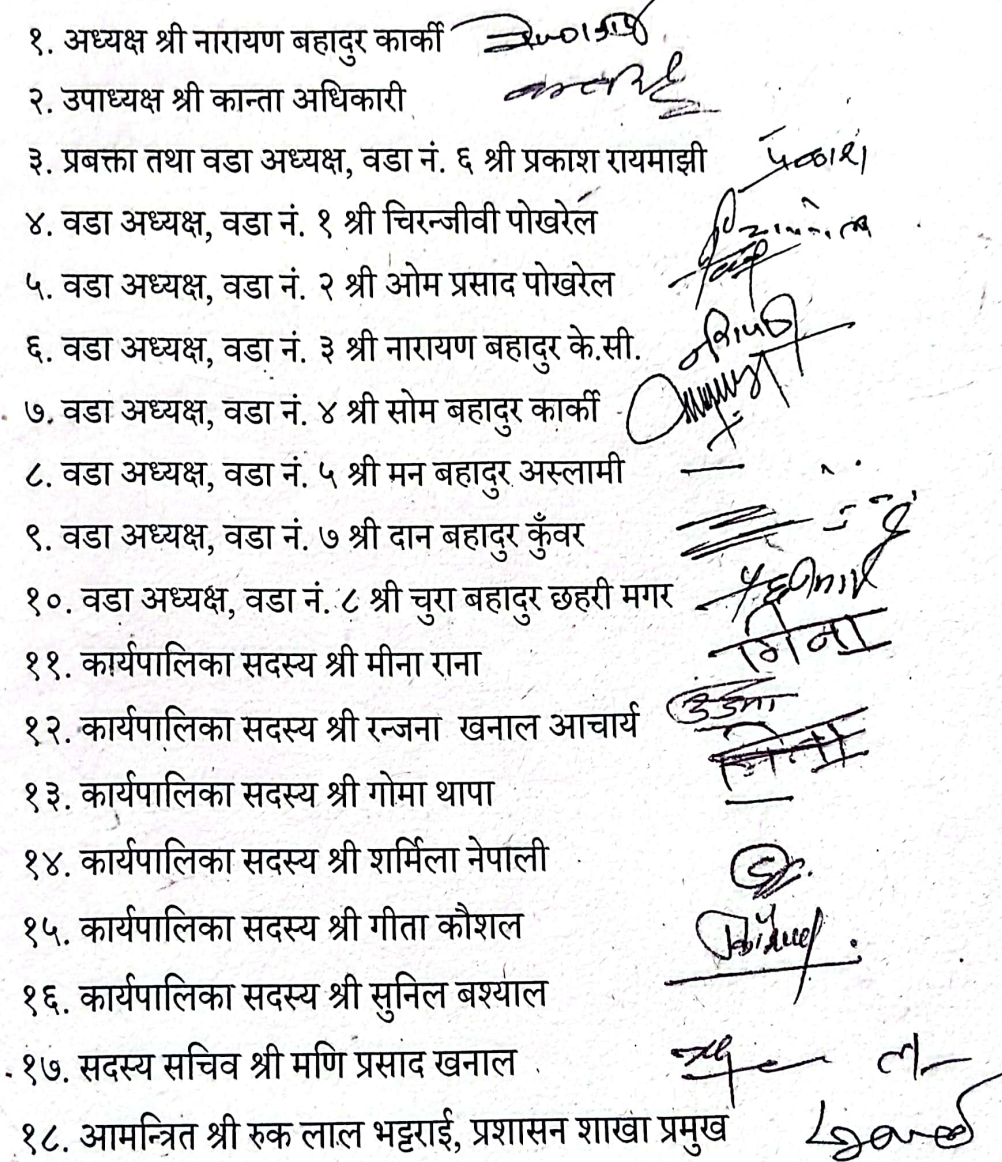 १. अध्यक्ष श्री नारायण बहादुर कार्की
२. उपाध्यक्ष श्री कान्ता अधिकारी
३. प्रबक्ता तथा वडा अध्यक्ष, वडा नं. ६ श्री प्रकाश रायमाझी प्रकाश
४. वडा अध्यक्ष, वडा नं. १ श्री चिरन्जीवी पोखरेल
५. वडा अध्यक्ष, वडा नं. २ श्री ओम प्रसाद पोखरेल
६. वडा अध्यक्ष, वडा नं. ३ श्री नारायण बहादुर के.सी.
७. वडा अध्यक्ष, वडा नं. ४ श्री सोम बहादुर कार्की
८. वडा अध्यक्ष, वडा नं. ५ श्री मन बहादुर अस्लामी
९. वडा अध्यक्ष, वडा नं. ७ श्री दान बहादुर कुँवर
१०. वडा अध्यक्ष, वडा नं. ८ श्री चुरा बहादुर छहरी मगर
११. कार्यपालिका सदस्य श्री मीना राना मिना
१२. कार्यपालिका सदस्य श्री रन्जना खनाल आचार्य
१३. कार्यपालिका सदस्य श्री गोमा थापा
१४. कार्यपालिका सदस्य श्री शर्मिला नेपाली
१५. कार्यपालिका सदस्य श्री गीता कौशल
१६. कार्यपालिका सदस्य श्री सुनिल बश्याल
१७. सदस्य सचिव श्री मणि प्रसाद खनाल
१८. आमन्त्रित श्री रुक लाल भट्टराई, प्रशासन शाखा प्रमुख